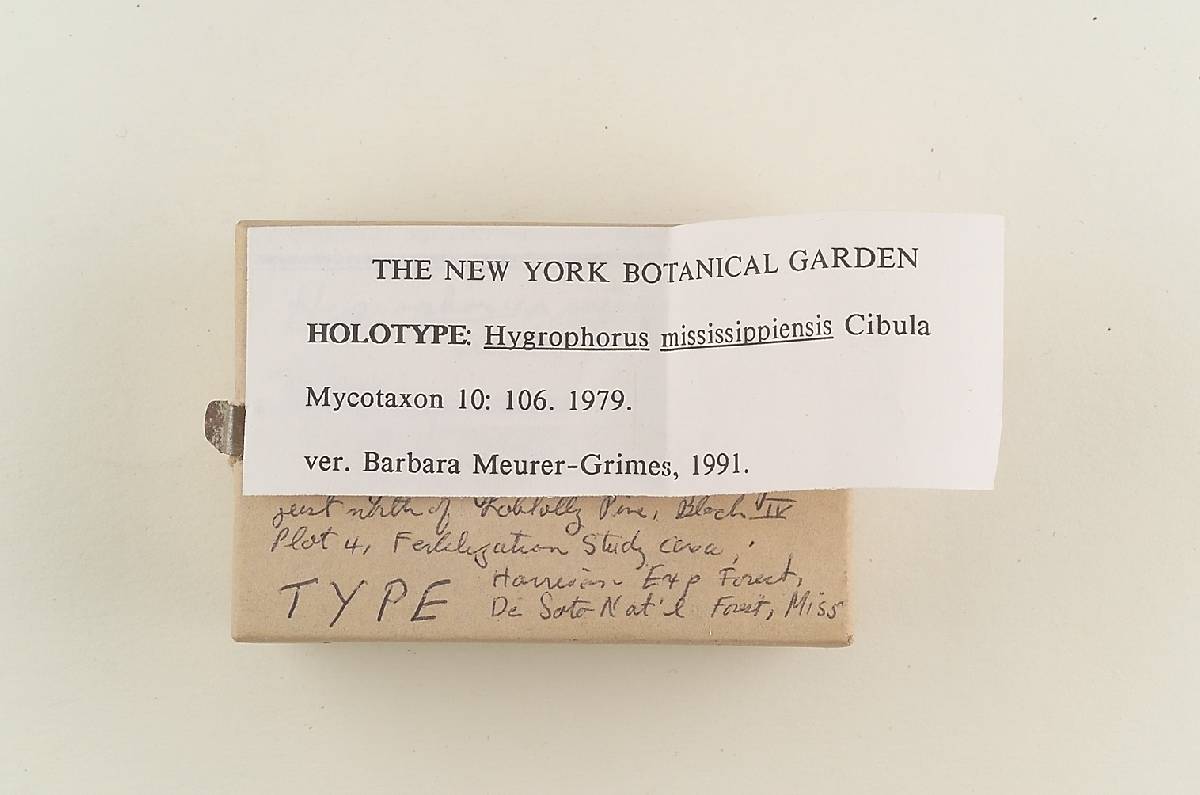 THE NEW YORK BOTANICAL GARDEN
HOLOTYPE: Hygrophorus mississippiensis Cibula
Mycotaxon 10: 106. 1979.
ver. Barbara Meurer-Grimes, 1991.
just north of Loblolly Pine, Block IV
Plot 4, Fertilization Study area,
Harrison Exp Forest,
TYPE De Soto Nat'l Forest, Miss